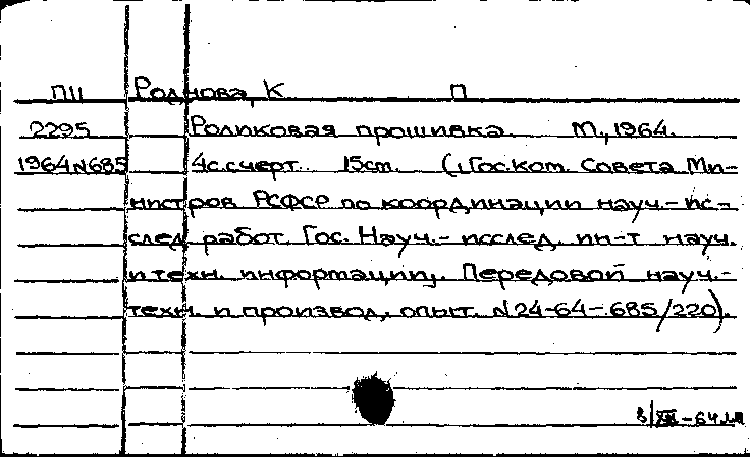 ПII Роднова, К П
2295 Роликовая прошивка. М., 1964.
1964 N685 4с. с черт. 15cm. (Гос. ком. Совета Ми-
нистров РСФСР по координации науч.- ис-
след. работ. Гос. Науч.- исслед. ин-т науч.
и техн. информации. Передовой науч.-
техн. и производ. опыт. N 24-64-685/220).
3/XII-64